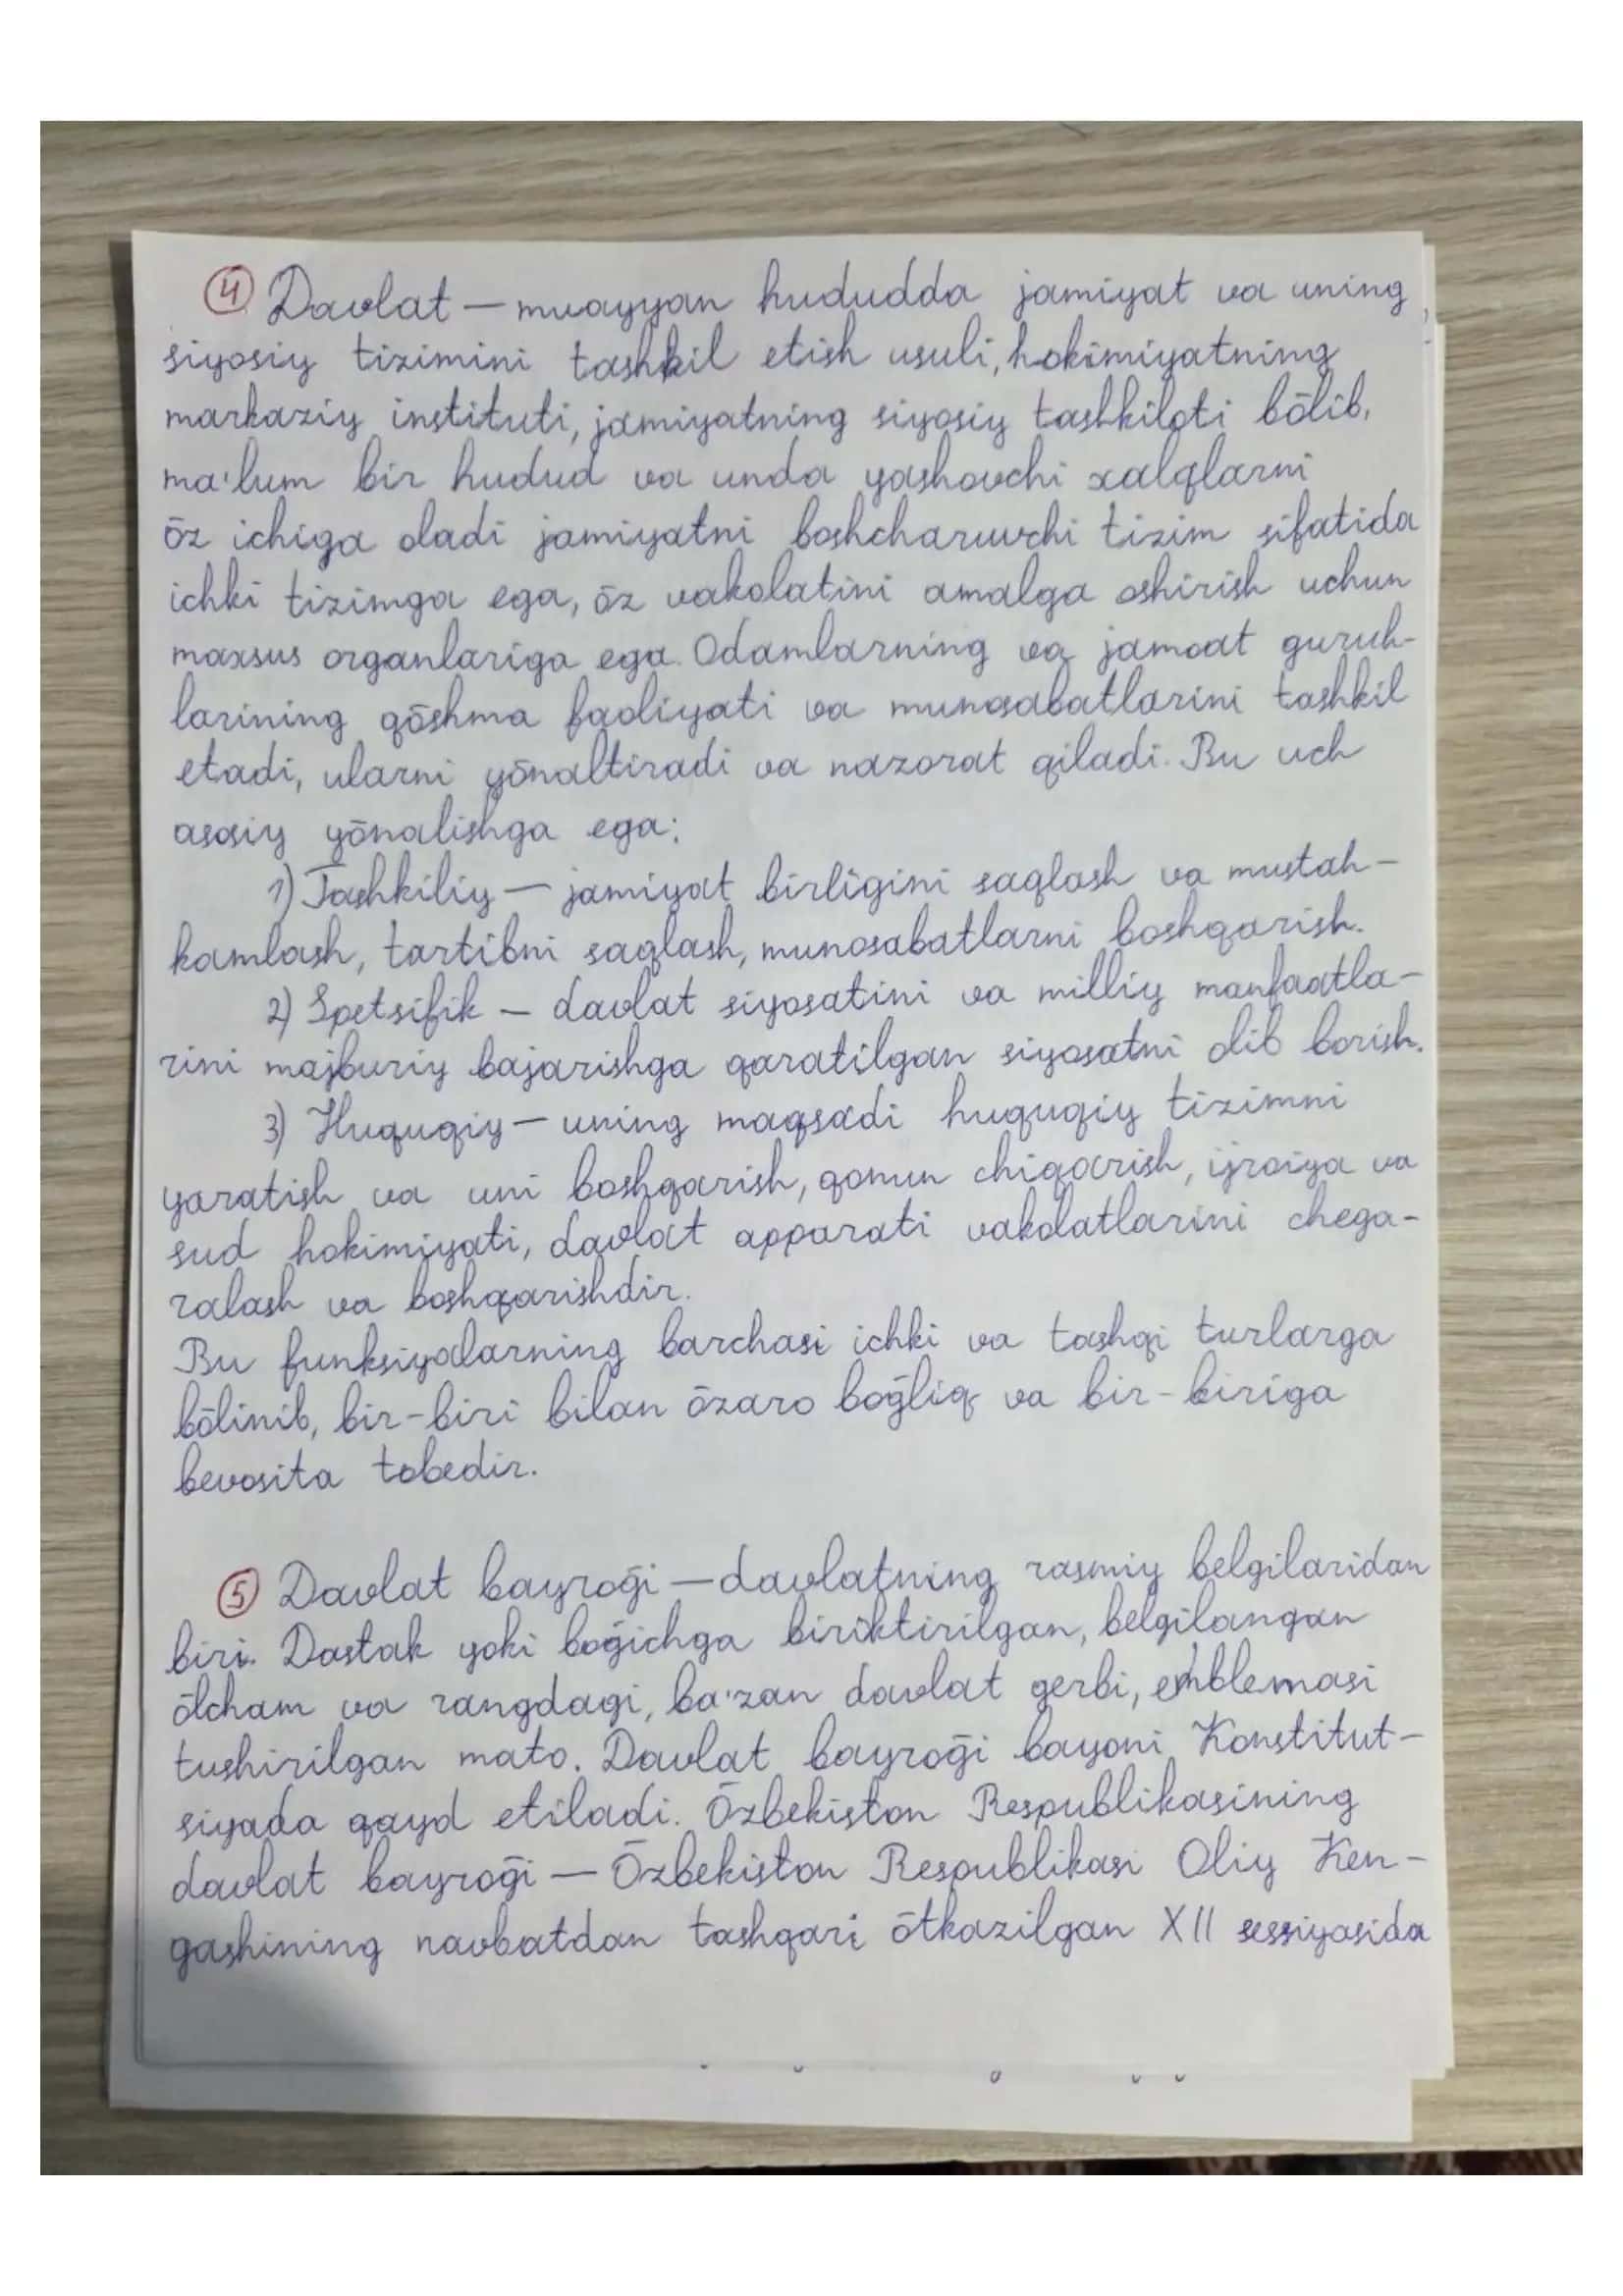 ④ Davlat — muayyan hududda jamiyat va uning
siyosiy tizimini tashkil etish usuli, hokimiyatning
markaziy instituti, jamiyatning siyosiy tashkiloti bōlib,
ma'lum bir hudud va unda yashovchi xalqlarni
ōz ichiga oladi jamiyatni boshcharuvchi tizim sifatida
ichki tizimga ega, ōz vakolatini amalga oshirish uchun
maxsus organlariga ega. Odamlarning va jamoat guruh-
larining qōshma faoliyati va munosabatlarini tashkil
etadi, ularni yōnaltiradi va nazorat qiladi. Bu uch
asosiy yōnalishga ega:
1) Tashkiliy — jamiyat birligini saqlash va mustah-
kamlash, tartibni saqlash, munosabatlarni boshqarish.
2) Spetsifik — davlat siyosatini va milliy manfaatla-
rini majburiy bajarishga qaratilgan siyosatni olib borish.
3) Huquqiy — uning maqsadi huquqiy tizimni
yaratish va uni boshqarish, qonun chiqarish, ijroiya va
sud hokimiyati, davlat apparati vakolatlarini chega-
ralash va boshqarishdir.
Bu funksiyalarning barchasi ichki va tashqi turlarga
bōlinib, bir-biri bilan ōzaro boḡliq va bir-biriga
bevosita tobedir.
⑤ Davlat bayroḡi — davlatning rasmiy belgilaridan
biri. Dastak yoki boḡichga biriktirilgan, belgilangan
ōlcham va rangdagi, ba'zan davlat gerbi, emblemasi
tushirilgan mato. Davlat bayroḡi bayoni Konstitut-
siyada qayd etiladi. Ōzbekiston Respublikasining
davlat bayroḡi — Ōzbekiston Respublikasi Oliy Ken-
gashining navbatdan tashqari ōtkazilgan XII sessiyasida